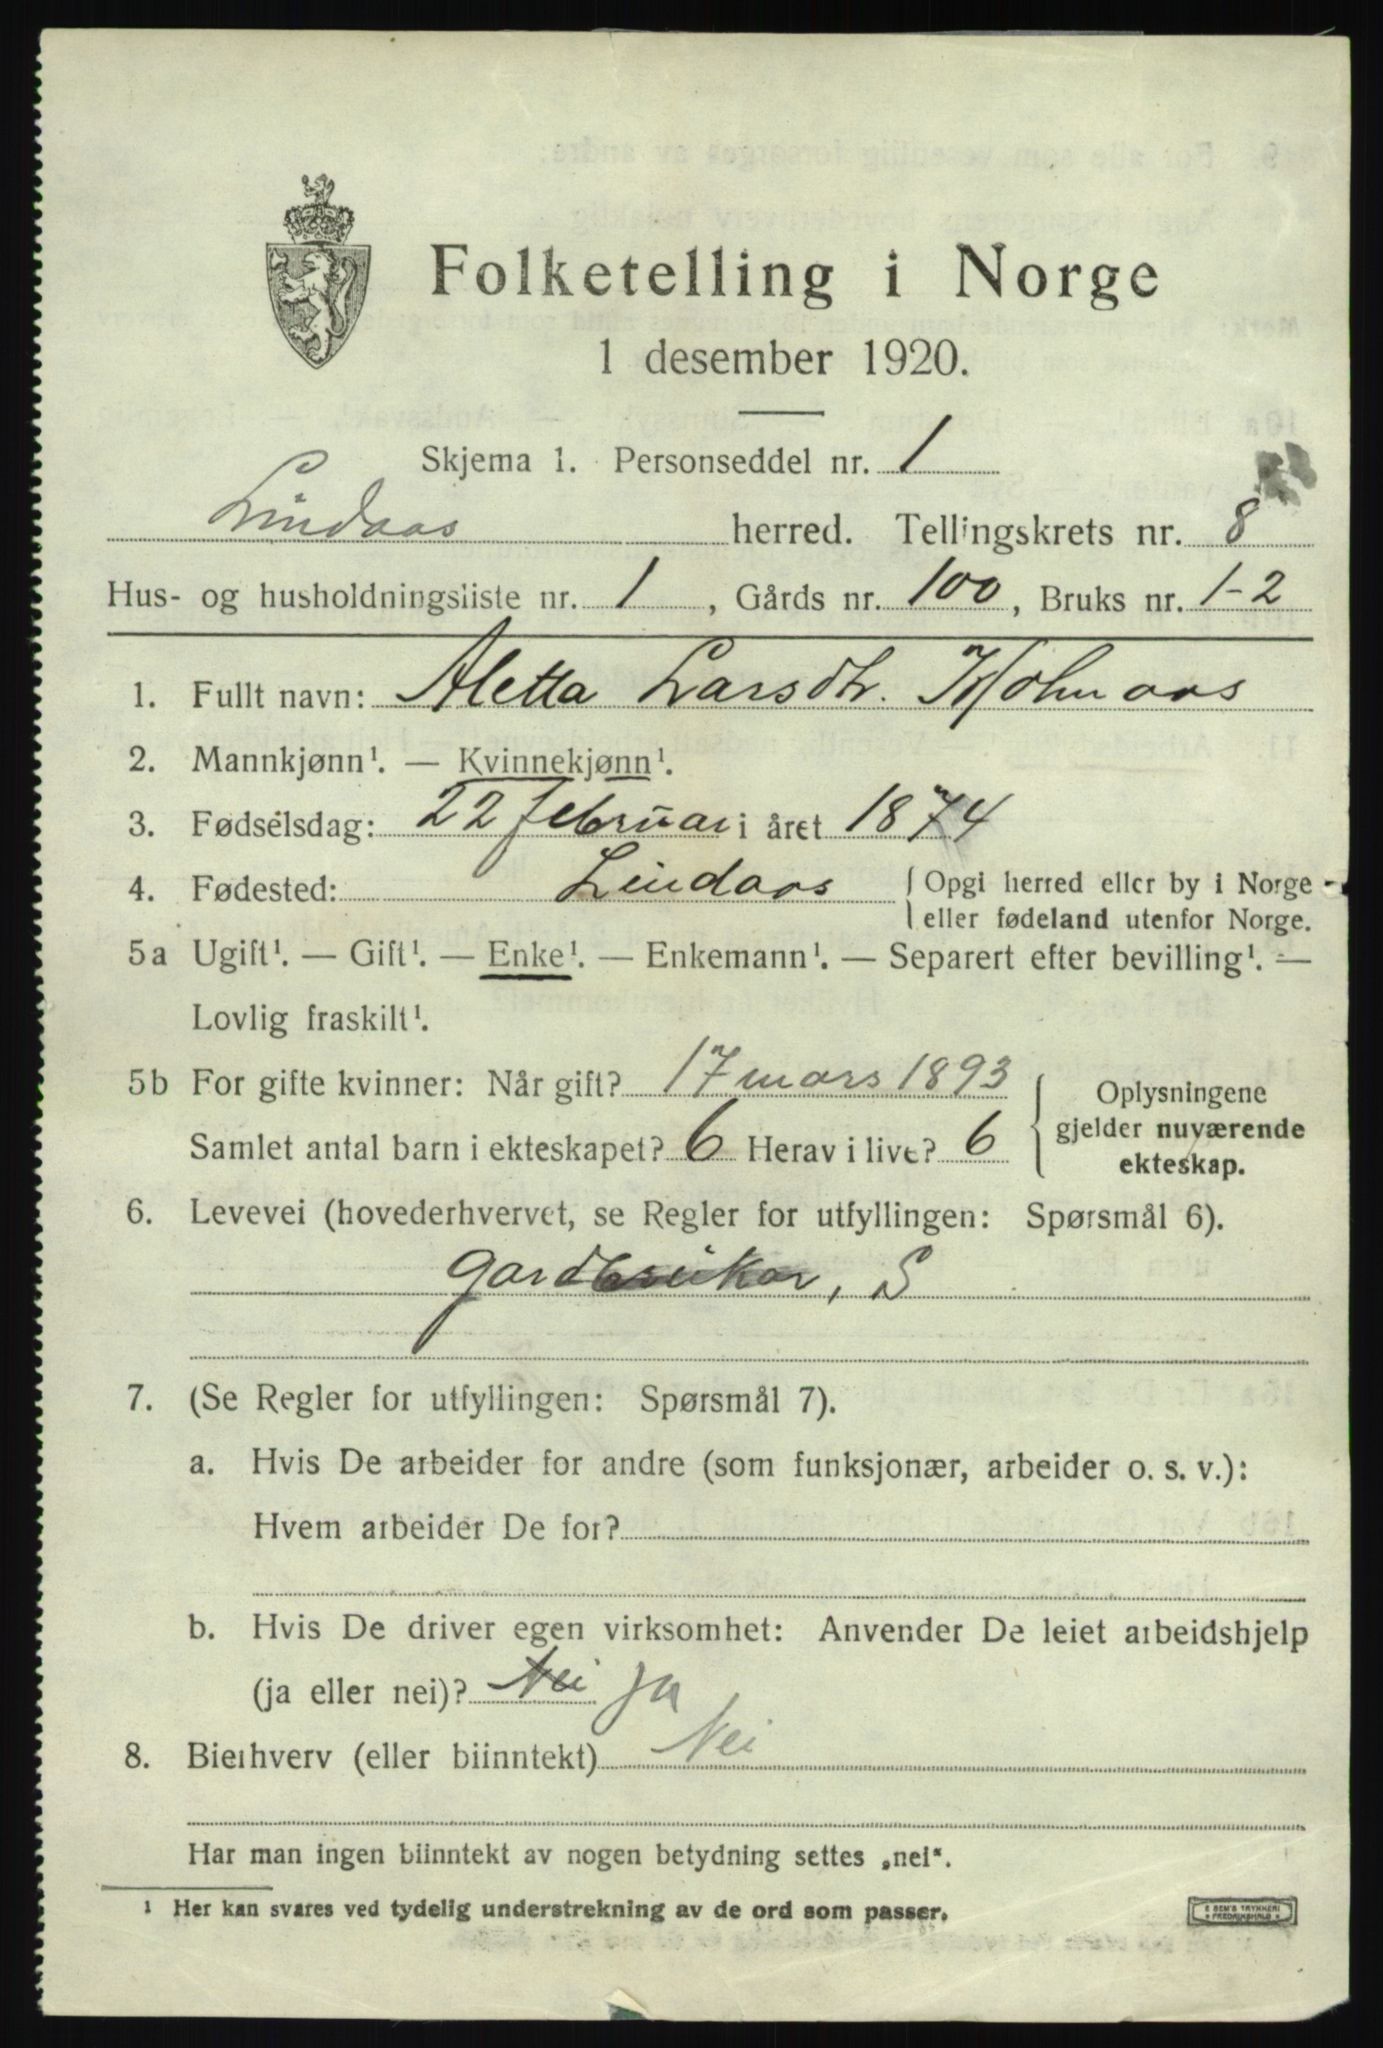 Folketelling i Norge
1 desember 1920.
Skjema 1. Personseddel nr. 1
Lindaas herred. Tellingskrets nr. 8
Hus- og husholdningsliste nr. 1, Gårds nr. 100, Bruks nr. 1-2
1. Fullt navn: Aletta Larsdtr. Kolmaas
2. Mannkjønn¹. — Kvinnekjønn¹.
3. Fødselsdag: 22 februar i året 1874
4. Fødested: Lindaas { Opgi herred eller by i Norge
eller fødeland utenfor Norge.
5a Ugift¹. — Gift¹. — Enke¹. — Enkemann¹. — Separert efter bevilling¹. —
Lovlig fraskilt¹.
5b For gifte kvinner: Når gift? 17 mars 1893 { Oplysningene
Samlet antal barn i ekteskapet? 6 Herav i live? 6 gjelder nuværende
ekteskap.
6. Levevei (hovederhvervet, se Regler for utfyllingen: Spørsmål 6).
Gardbrukar, S
7. (Se Regler for utfyllingen: Spørsmål 7).
a. Hvis De arbeider for andre (som funksjonær, arbeider o. s. v.):
Hvem arbeider De for?
b. Hvis De driver egen virksomhet: Anvender De leiet arbeidshjelp
(ja eller nei)? Nei ja
8. Bierhverv (eller biinntekt) Nei
Har man ingen biinntekt av nogen betydning settes „nei“.
¹ Her kan svares ved tydelig understrekning av de ord som passer.
E SEM'S TRYKKERI
FREDRIKSHALD